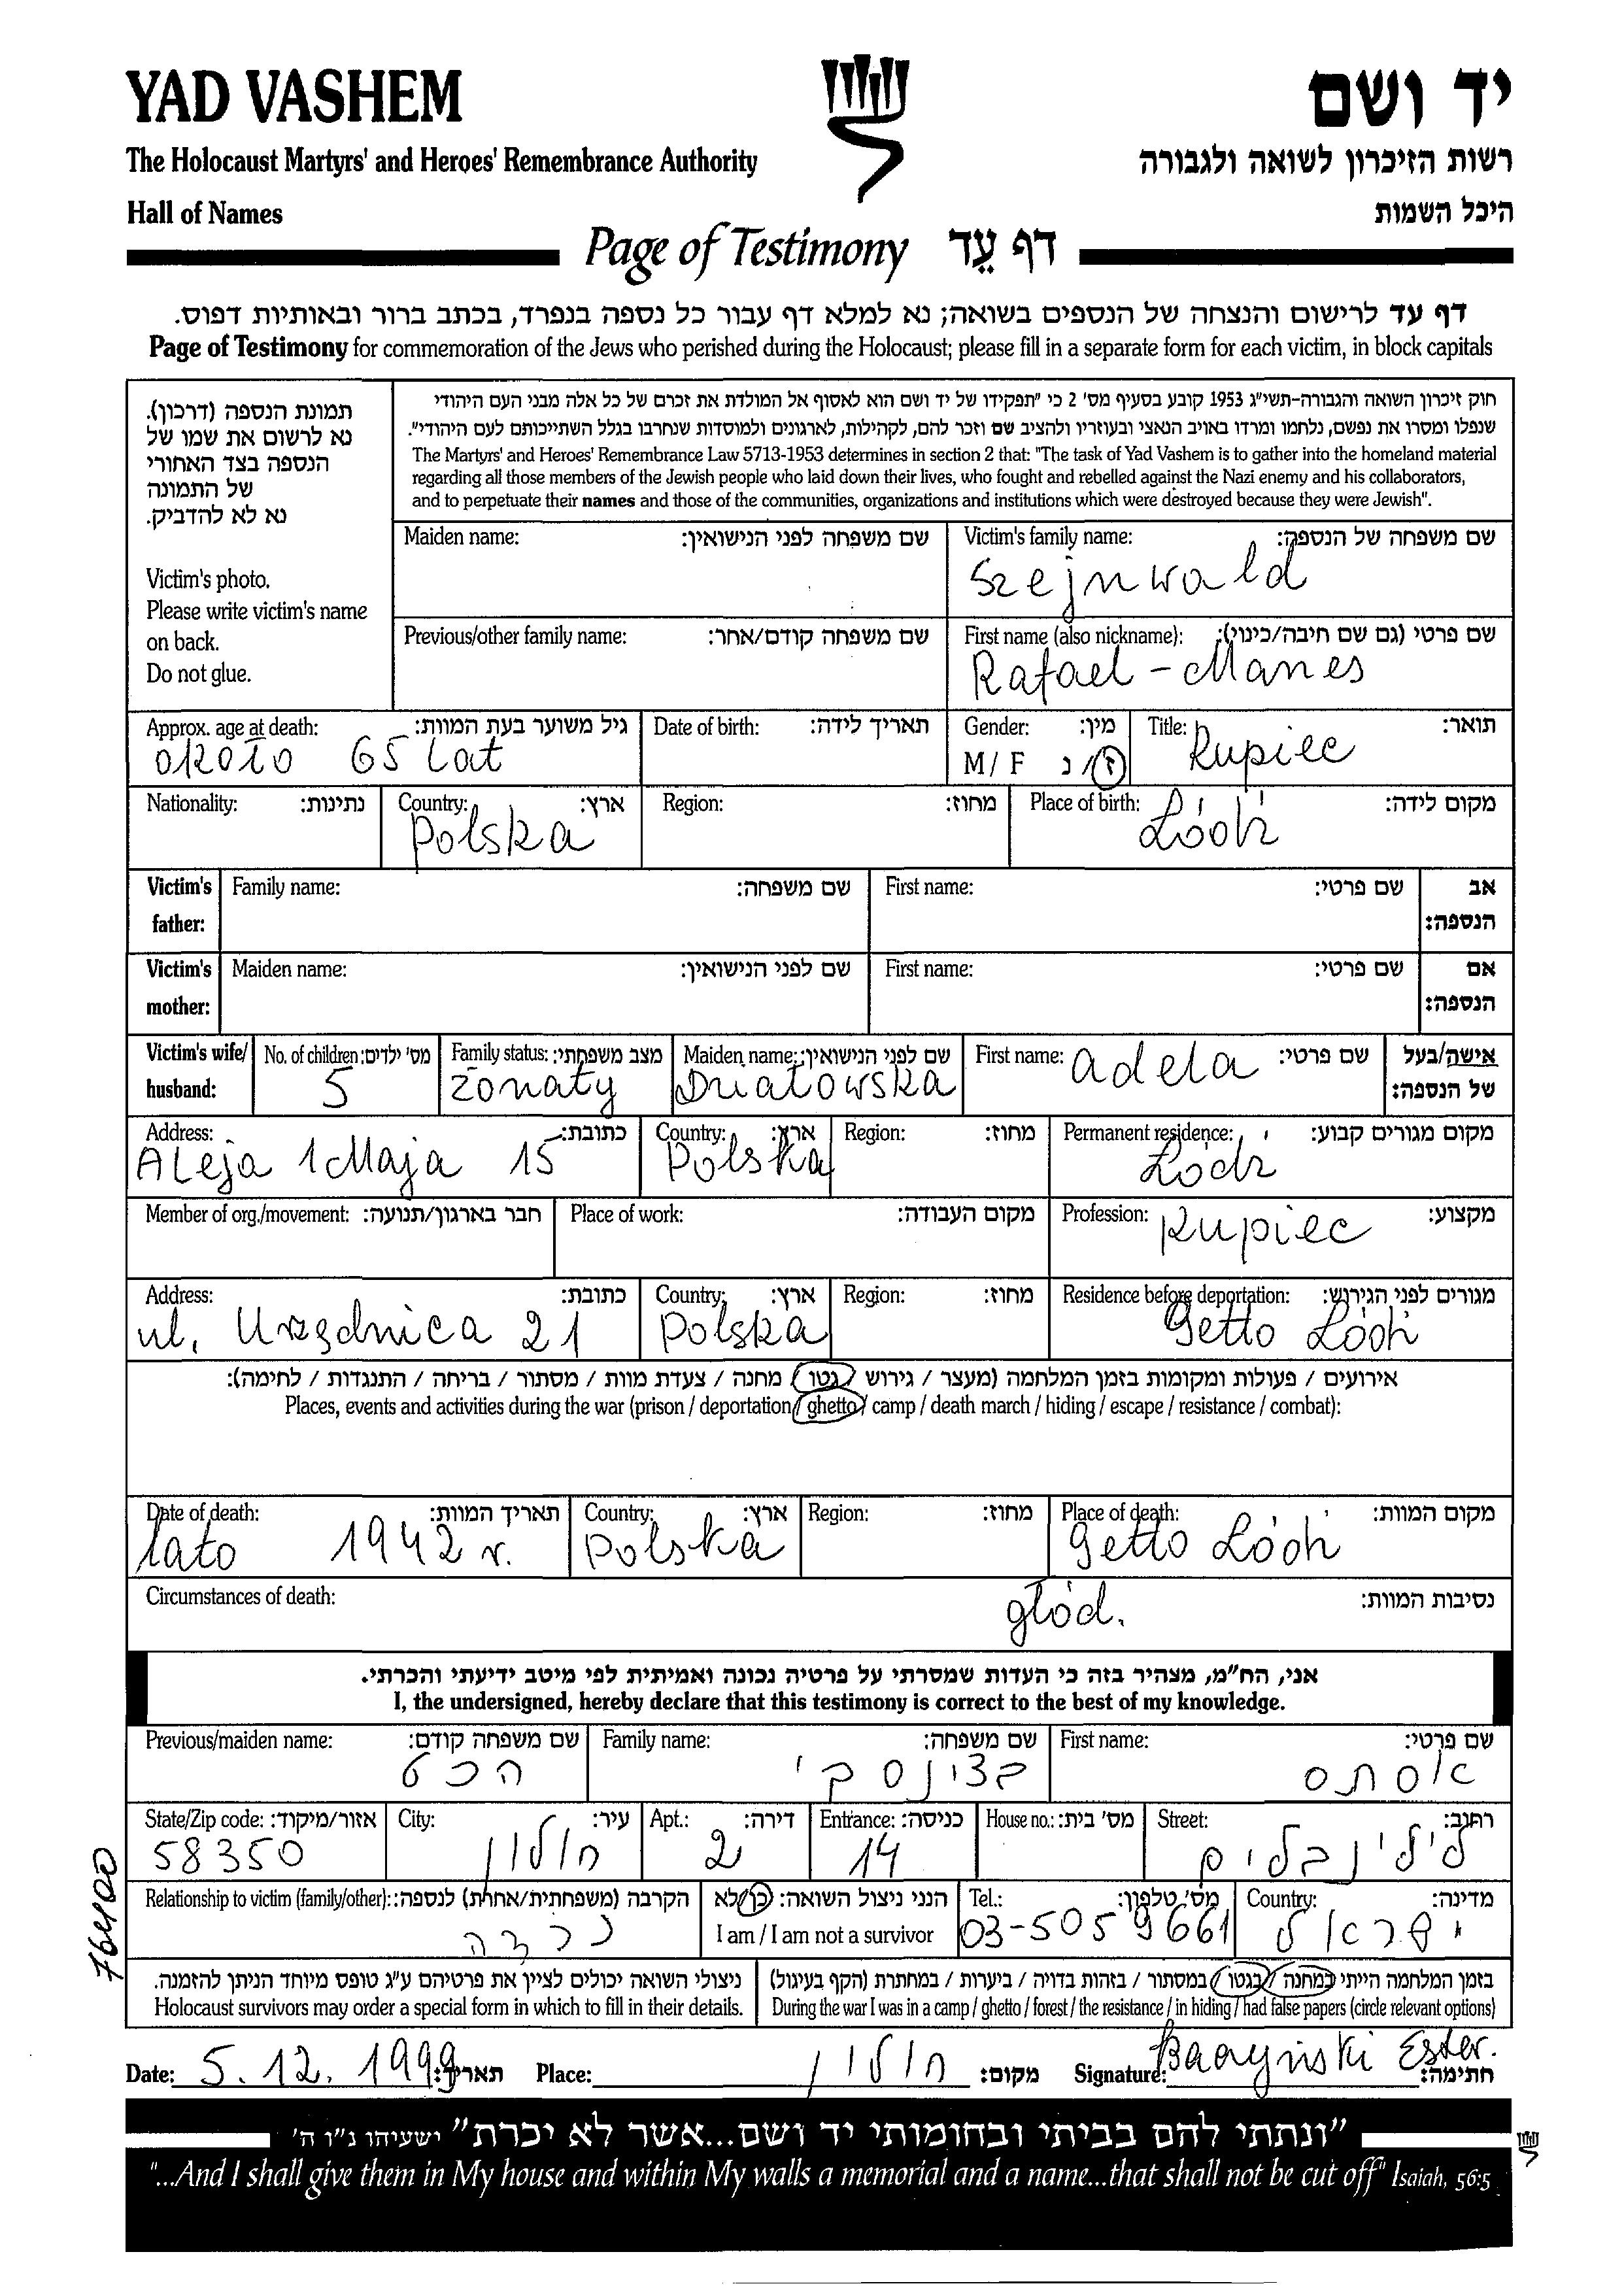 YAD VASHEM
יד ושם
The Holocaust Martyrs' and Heroes' Remembrance Authority
רשות הזיכרון לשואה ולגבורה
Hall of Names
היכל השמות
Page of Testimony דף עֵד
דף עד לרישום והנצחה של הנספים בשואה; נא למלא דף עבור כל נספה בנפרד, בכתב ברור ובאותיות דפוס.
Page of Testimony for commemoration of the Jews who perished during the Holocaust; please fill in a separate form for each victim, in block capitals
תמונת הנספה (דרכון).
נא לרשום את שמו של
הנספה בצד האחורי
של התמונה
נא לא להדביק.
Victim's photo.
Please write victim's name
on back.
Do not glue.
חוק זיכרון השואה והגבורה-תשי"ג 1953 קובע בסעיף מס' 2 כי "תפקידו של יד ושם הוא לאסוף אל המולדת את זכרם של כל אלה מבני העם היהודי
שנפלו ומסרו את נפשם, נלחמו ומרדו באויב הנאצי ובעוזריו ולהציב שם וזכר להם, לקהילות, לארגונים ולמוסדות שנחרבו בגלל השתייכותם לעם היהודי".
The Martyrs' and Heroes' Remembrance Law 5713-1953 determines in section 2 that: "The task of Yad Vashem is to gather into the homeland material
regarding all those members of the Jewish people who laid down their lives, who fought and rebelled against the Nazi enemy and his collaborators,
and to perpetuate their names and those of the communities, organizations and institutions which were destroyed because they were Jewish".
Maiden name: שם משפחה לפני הנישואין:
Victim's family name: שם משפחה של הנספה:
Szejnwald
Previous/other family name: שם משפחה קודם/אחר:
First name (also nickname): שם פרטי (גם שם חיבה/כינוי):
Rafael - Manes
Approx. age at death: גיל משוער בעת המוות:
około 65 lat
Date of birth: תאריך לידה:
Gender: מין:
M / F ז / נ
Title: תואר:
Kupiec
Nationality: נתינות:
Country: ארץ:
Polska
Region: מחוז:
Place of birth: מקום לידה:
Łódź
Victim's father: Family name: שם משפחה: First name: שם פרטי: אב הנספה:
Victim's mother: Maiden name: שם לפני הנישואין: First name: שם פרטי: אם הנספה:
Victim's wife/ husband:
No. of children: מס' ילדים:
5
Family status: מצב משפחתי:
żonaty
Maiden name: שם לפני הנישואין:
Działowska
First name: שם פרטי:
Adela
אישה/בעל של הנספה:
Address: כתובת:
Aleja 1 Maja 15
Country: ארץ:
Polska
Region: מחוז:
Permanent residence: מקום מגורים קבוע:
Łódź
Member of org./movement: חבר בארגון/תנועה:
Place of work: מקום העבודה:
Profession: מקצוע:
Kupiec
Address: כתובת:
ul. Urzędnica 21
Country: ארץ:
Polska
Region: מחוז:
Residence before deportation: מגורים לפני הגירוש:
Getto Łódź
אירועים / פעולות ומקומות בזמן המלחמה (מעצר / גירוש / גטו / מחנה / צעדת מוות / מסתור / בריחה / התנגדות / לחימה):
Places, events and activities during the war (prison / deportation / ghetto / camp / death march / hiding / escape / resistance / combat):
Date of death: תאריך המוות:
lato 1942 r.
Country: ארץ:
Polska
Region: מחוז:
Place of death: מקום המוות:
Getto Łódź
Circumstances of death: נסיבות המוות:
głód.
אני, הח"מ, מצהיר בזה כי העדות שמסרתי על פרטיה נכונה ואמיתית לפי מיטב ידיעתי והכרתי.
I, the undersigned, hereby declare that this testimony is correct to the best of my knowledge.
Previous/maiden name: שם משפחה קודם:
Family name: שם משפחה:
First name: שם פרטי:
State/Zip code: אזור/מיקוד:
58350
City: עיר:
חולון
Apt.: דירה:
2
Entrance: כניסה:
14
House no.: מס' בית:
Street: רחוב:
לילינבלום
Relationship to victim (family/other): הקרבה (משפחתית/אחרת) לנספה:
נכדה
הנני ניצול השואה: כן/לא
I am / I am not a survivor
Tel.: מס' טלפון:
03-5059661
Country: מדינה:
ישראל
ניצולי השואה יכולים לציין את פרטיהם ע"ג טופס מיוחד הניתן להזמנה.
Holocaust survivors may order a special form in which to fill in their details.
בזמן המלחמה הייתי במחנה / בגטו / במסתור / בזהות בדויה / ביערות / במחתרת (הקף בעיגול)
During the war I was in a camp / ghetto / forest / the resistance / in hiding / had false papers (circle relevant options)
764100
Date: 5.12.1999 תאריך:
Place: חולון מקום:
Signature: Ester. חתימה:
"ונתתי להם בביתי ובחומותי יד ושם...אשר לא יכרת" ישעיהו נ"ו ה'
"...And I shall give them in My house and within My walls a memorial and a name...that shall not be cut off" Isaiah, 56:5